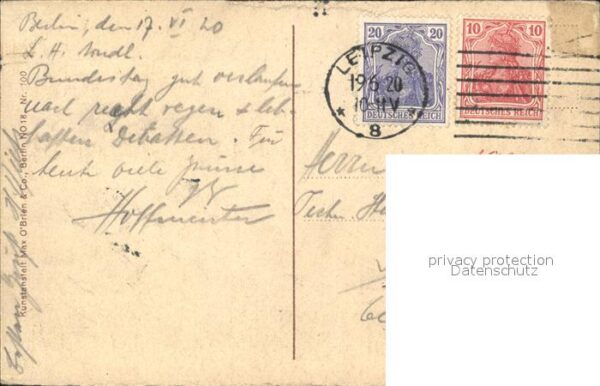 Berlin, den 17. VI 20
L. H.
Bundestag gut verlaufen
nach recht regen & leb-
haften Debatten. Für
heute viele Grüsse
Hoffmeister
Kunstanstalt Max O'Brien & Co., Berlin NO18. Nr. 100
20 20
DEUTSCHES REICH
10 10
DEUTSCHES REICH
LEIPZIG
19 6 20
10-11 V
* 8 *
Herrn
Techn.
privacy protection
Datenschutz